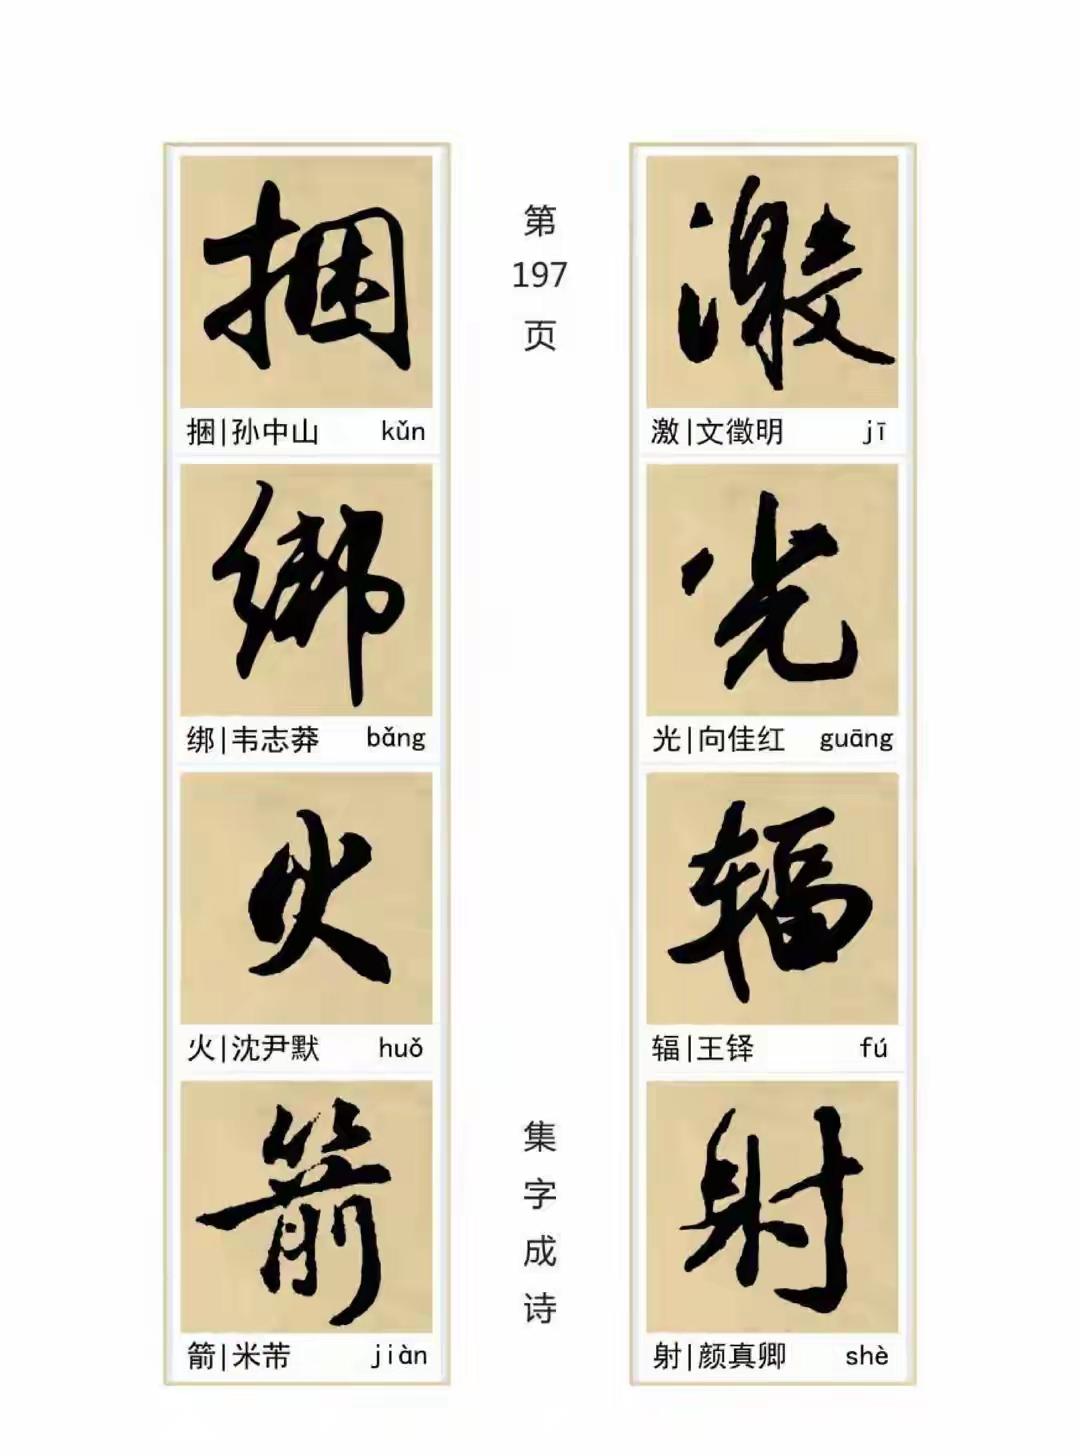 激
激|文徵明 jī
光
光|向佳红 guāng
辐
辐|王铎 fú
射
射|颜真卿 shè
第
197
页
集
字
成
诗
捆
捆|孙中山 kǔn
绑
绑|韦志莽 bǎng
火
火|沈尹默 huǒ
箭
箭|米芾 jiàn